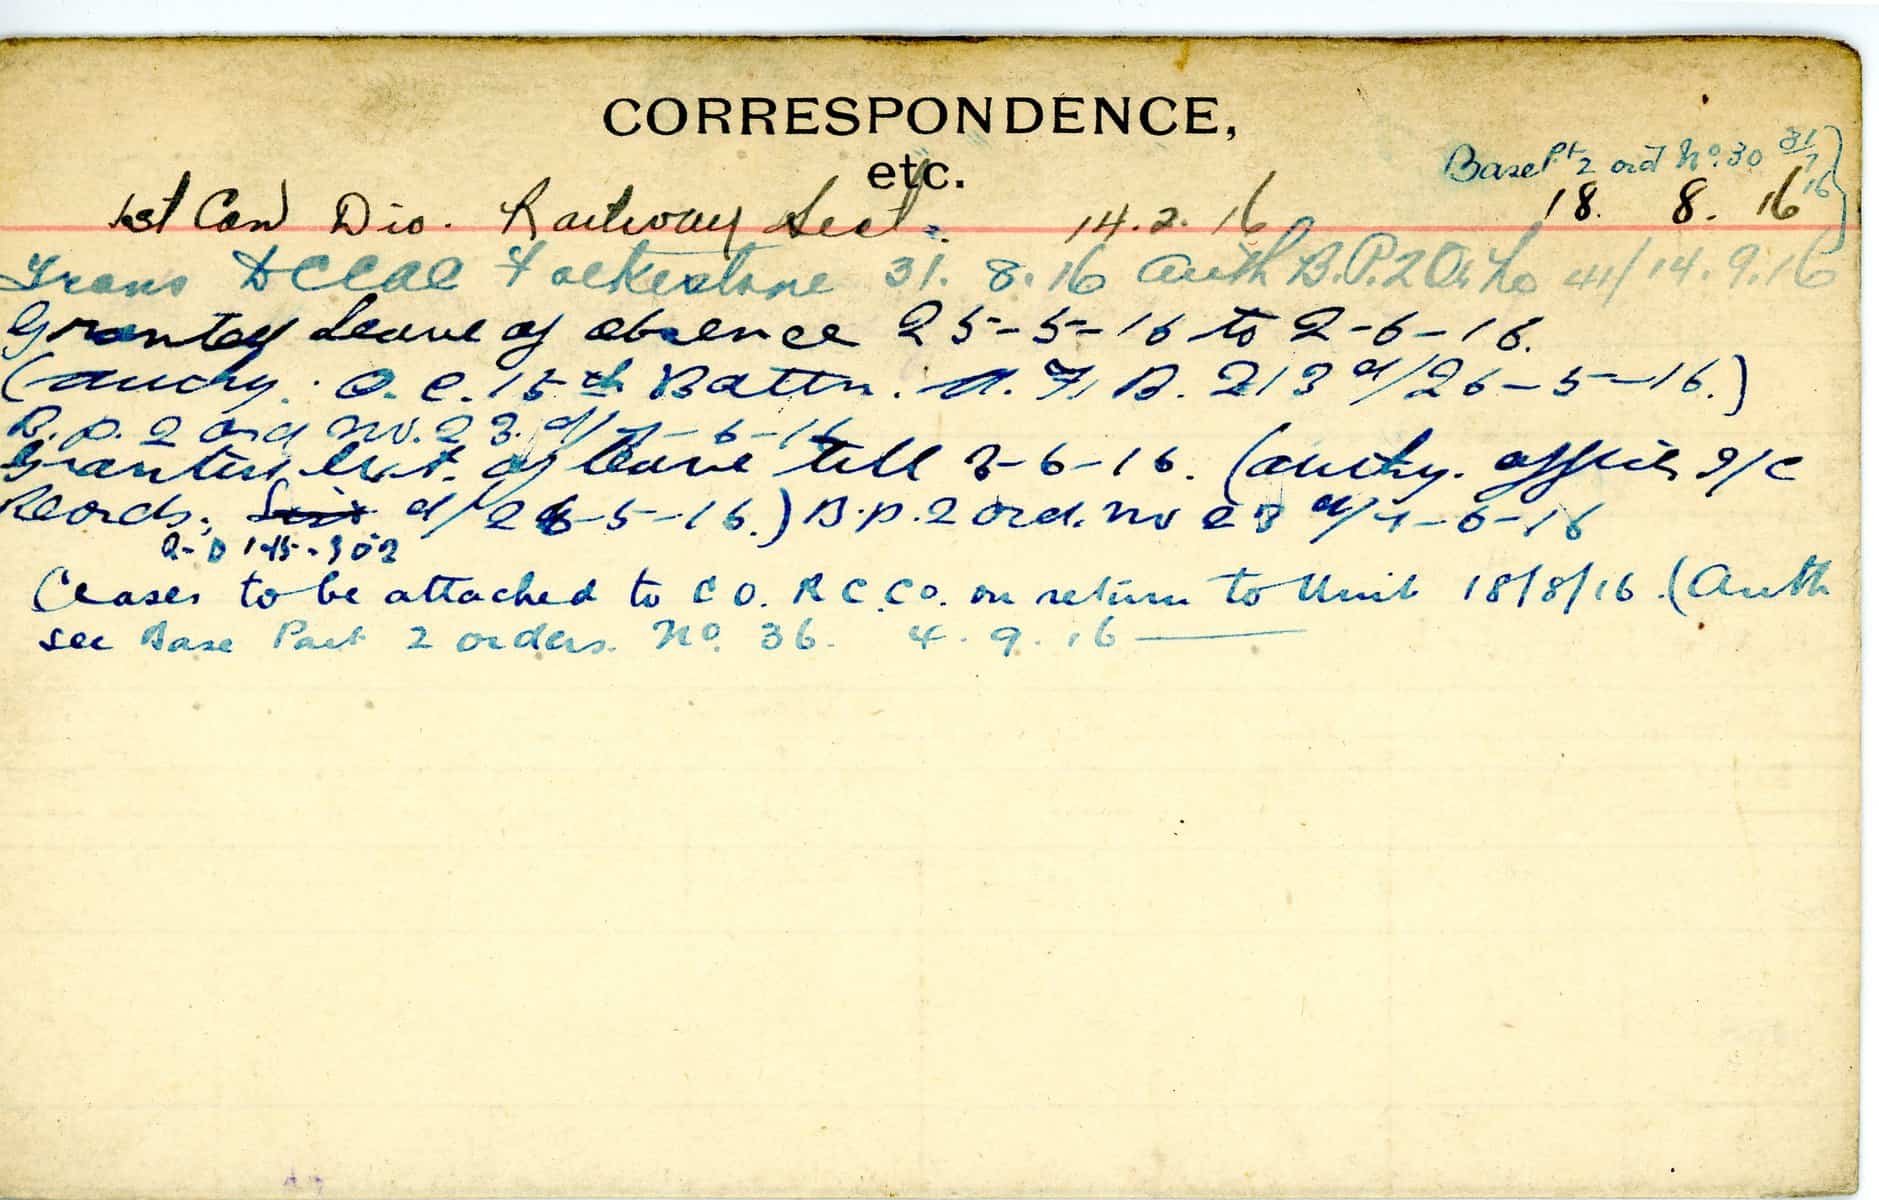 CORRESPONDENCE,
etc.
Base Pt 2 ord No. 30 31/7/16
1st Can Div. Railway Sect. 14.2.16 18. 8. 16
Trans DCCAC Folkestone 31.8.16 Auth B.P.2 O. No 41/14.9.16
Granted Leave of absence 25-5-16 to 2-6-16.
(authy. O.C. 15th Battn. A.F.B. 213 d/26-5-16.)
B.P. 2 ord no. 23. d/7-6-16
Granted Ext. of leave till 3-6-16. (authy. Officer I/C
Records, List d/26-5-16.) B.P. 2 ord. no 23 d/7-6-16
Ceases to be attached to C O. R C. Co. on return to Unit 18/8/16. (Auth
see Base Part 2 orders. No. 36. 4.9.16